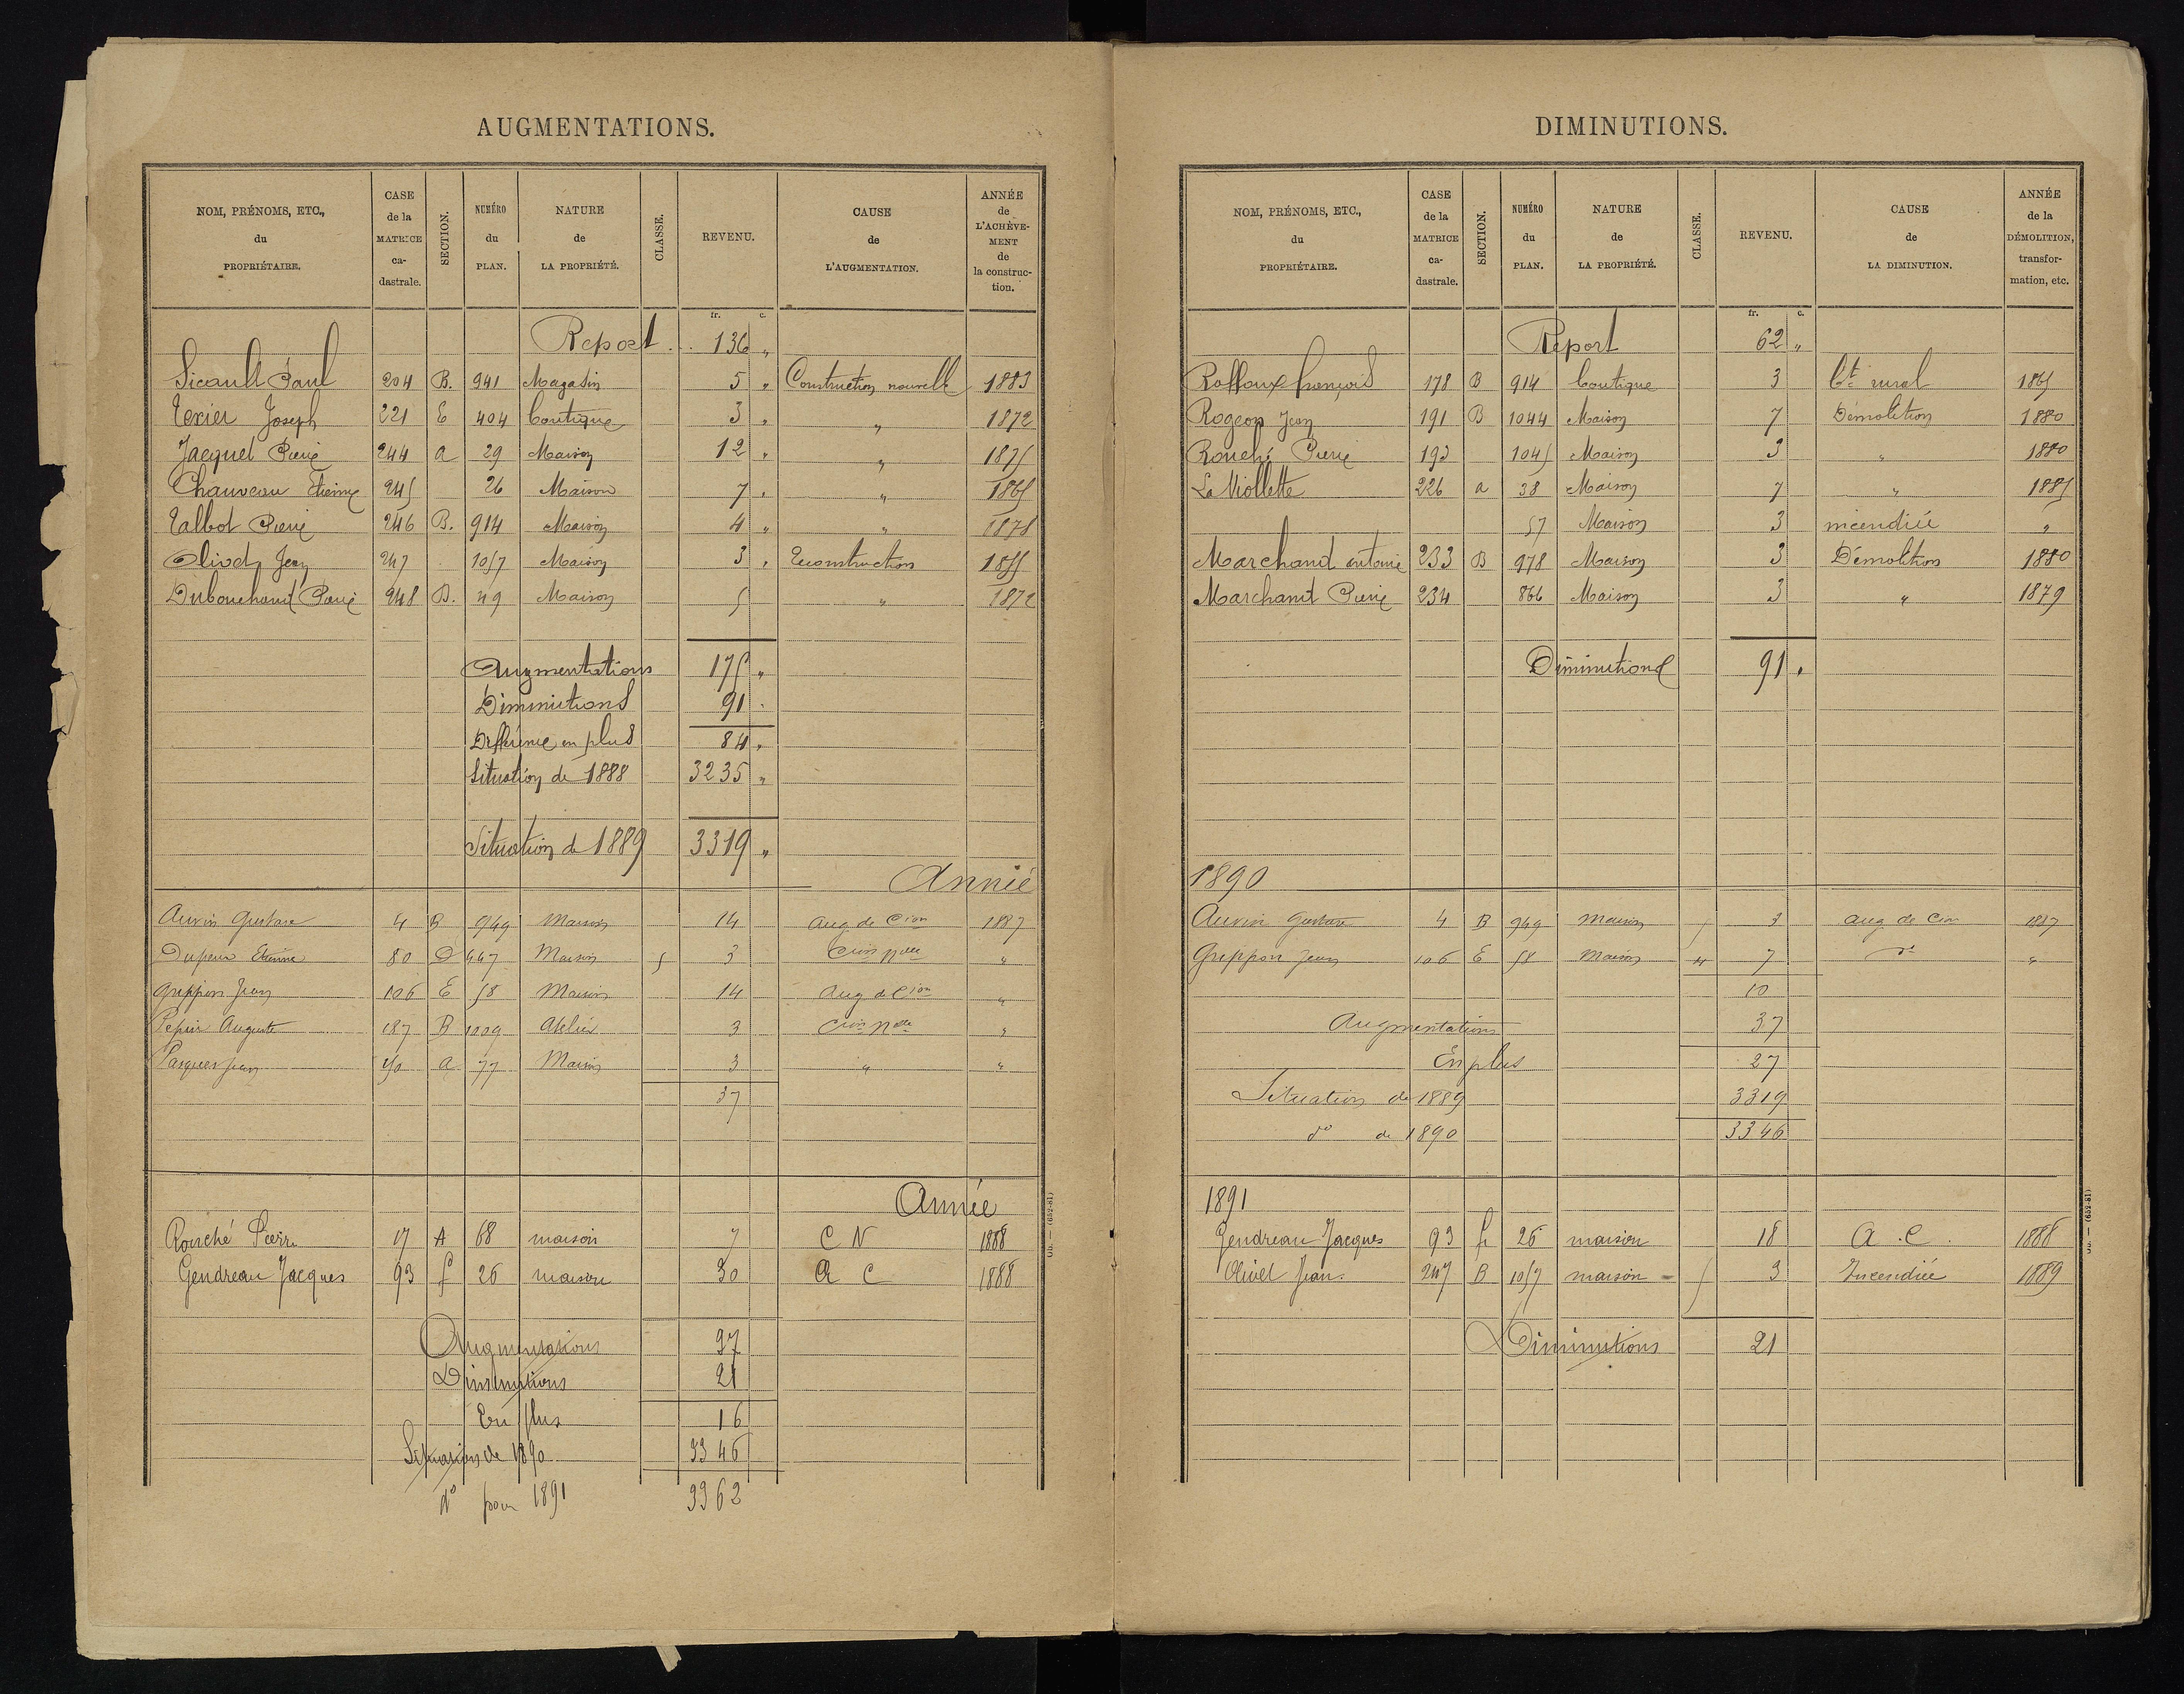 AUGMENTATIONS.
NOM, PRÉNOMS, ETC., du PROPRIÉTAIRE. CASE de la MATRICE ca-dastrale. SECTION. NUMÉRO du PLAN. NATURE de LA PROPRIÉTÉ. CLASSE. REVENU. CAUSE de L'AUGMENTATION. ANNÉE de L'ACHÈVE-MENT de la construc-tion.
fr. c.
Report .. 136 "
Sicault Paul 204 B. 941 Magasin 5 " Construction nouvelle 1883
Texier Joseph 221 E 404 boutique 3 " " 1872
Jacquet Pierre 244 a 29 Maison 12 " " 1875
Chauveau Etienne 245 26 Maison 7 " " 1865
Talbot Pierre 246 B. 914 Maison 4 " "
Olivet Jean 247 1057 Maison 3 " Reconstruction
Dubouchand 248 B. 49 Maison 5 " 1872
Augmentations 175 "
Diminutions 91 "
Différence en plus 84 "
Situation de 1888 3235 "
Situation de 1889 3319 "
Année
Auvin Gustave 4 B 949 Maison 14 Aug. de Cion 1887
Etienne 80 D 447 Maison 5 3 Cion nlle "
Greppon Jean 106 E 58 Maison 14 Aug de Cion "
Pepin Auguste 187 B 1009 Atelier 3 Cion nlle "
Jean a 77 Maison 3 " "
37
Année
Rouché Pierre 17 A 68 maison 7 C N 1888
Gendreau Jacques 93 f 26 maison 30 A C 1888
Augmentations 37
Diminutions 21
En plus 16
Situation de 1890 3346
do pour 1891 3362
(652-81)
DIMINUTIONS.
NOM, PRÉNOMS, ETC., du PROPRIÉTAIRE. CASE de la MATRICE ca-dastrale. SECTION. NUMÉRO du PLAN. NATURE de LA PROPRIÉTÉ. CLASSE. REVENU. CAUSE de LA DIMINUTION. ANNÉE de la DÉMOLITION, transfor-mation, etc.
fr. c.
Report 62 "
Roffoux françois 178 B 914 boutique 3 bt rural 1865
Rogeon Jean 191 B 1044 Maison 7 Démolition 1880
Rouché Pierre 193 1045 Maison 3 " 1880
La Viollette 226 a 38 Maison 7 " 1885
57 Maison 3 incendiée "
Marchand antoine 233 B 978 Maison 3 Démolition 1880
Marchand Pierre 234 866 Maison 3 " 1879
Diminutions 91 "
1890
Auvin Gustave 4 B 949 Maison 5 3 aug de Cion 1887
Greppon Jean 106 E 58 Maison 4 7 do "
10
Augmentations 37
En plus 27
Situation de 1889 3319
do de 1890 3346
1891
Gendreau Jacques 93 f 26 maison 18 A. C. 1888
Olivet Jean. 247 B 1057 maison 5 3 Incendiée 1889
Diminutions 21
(652-81)